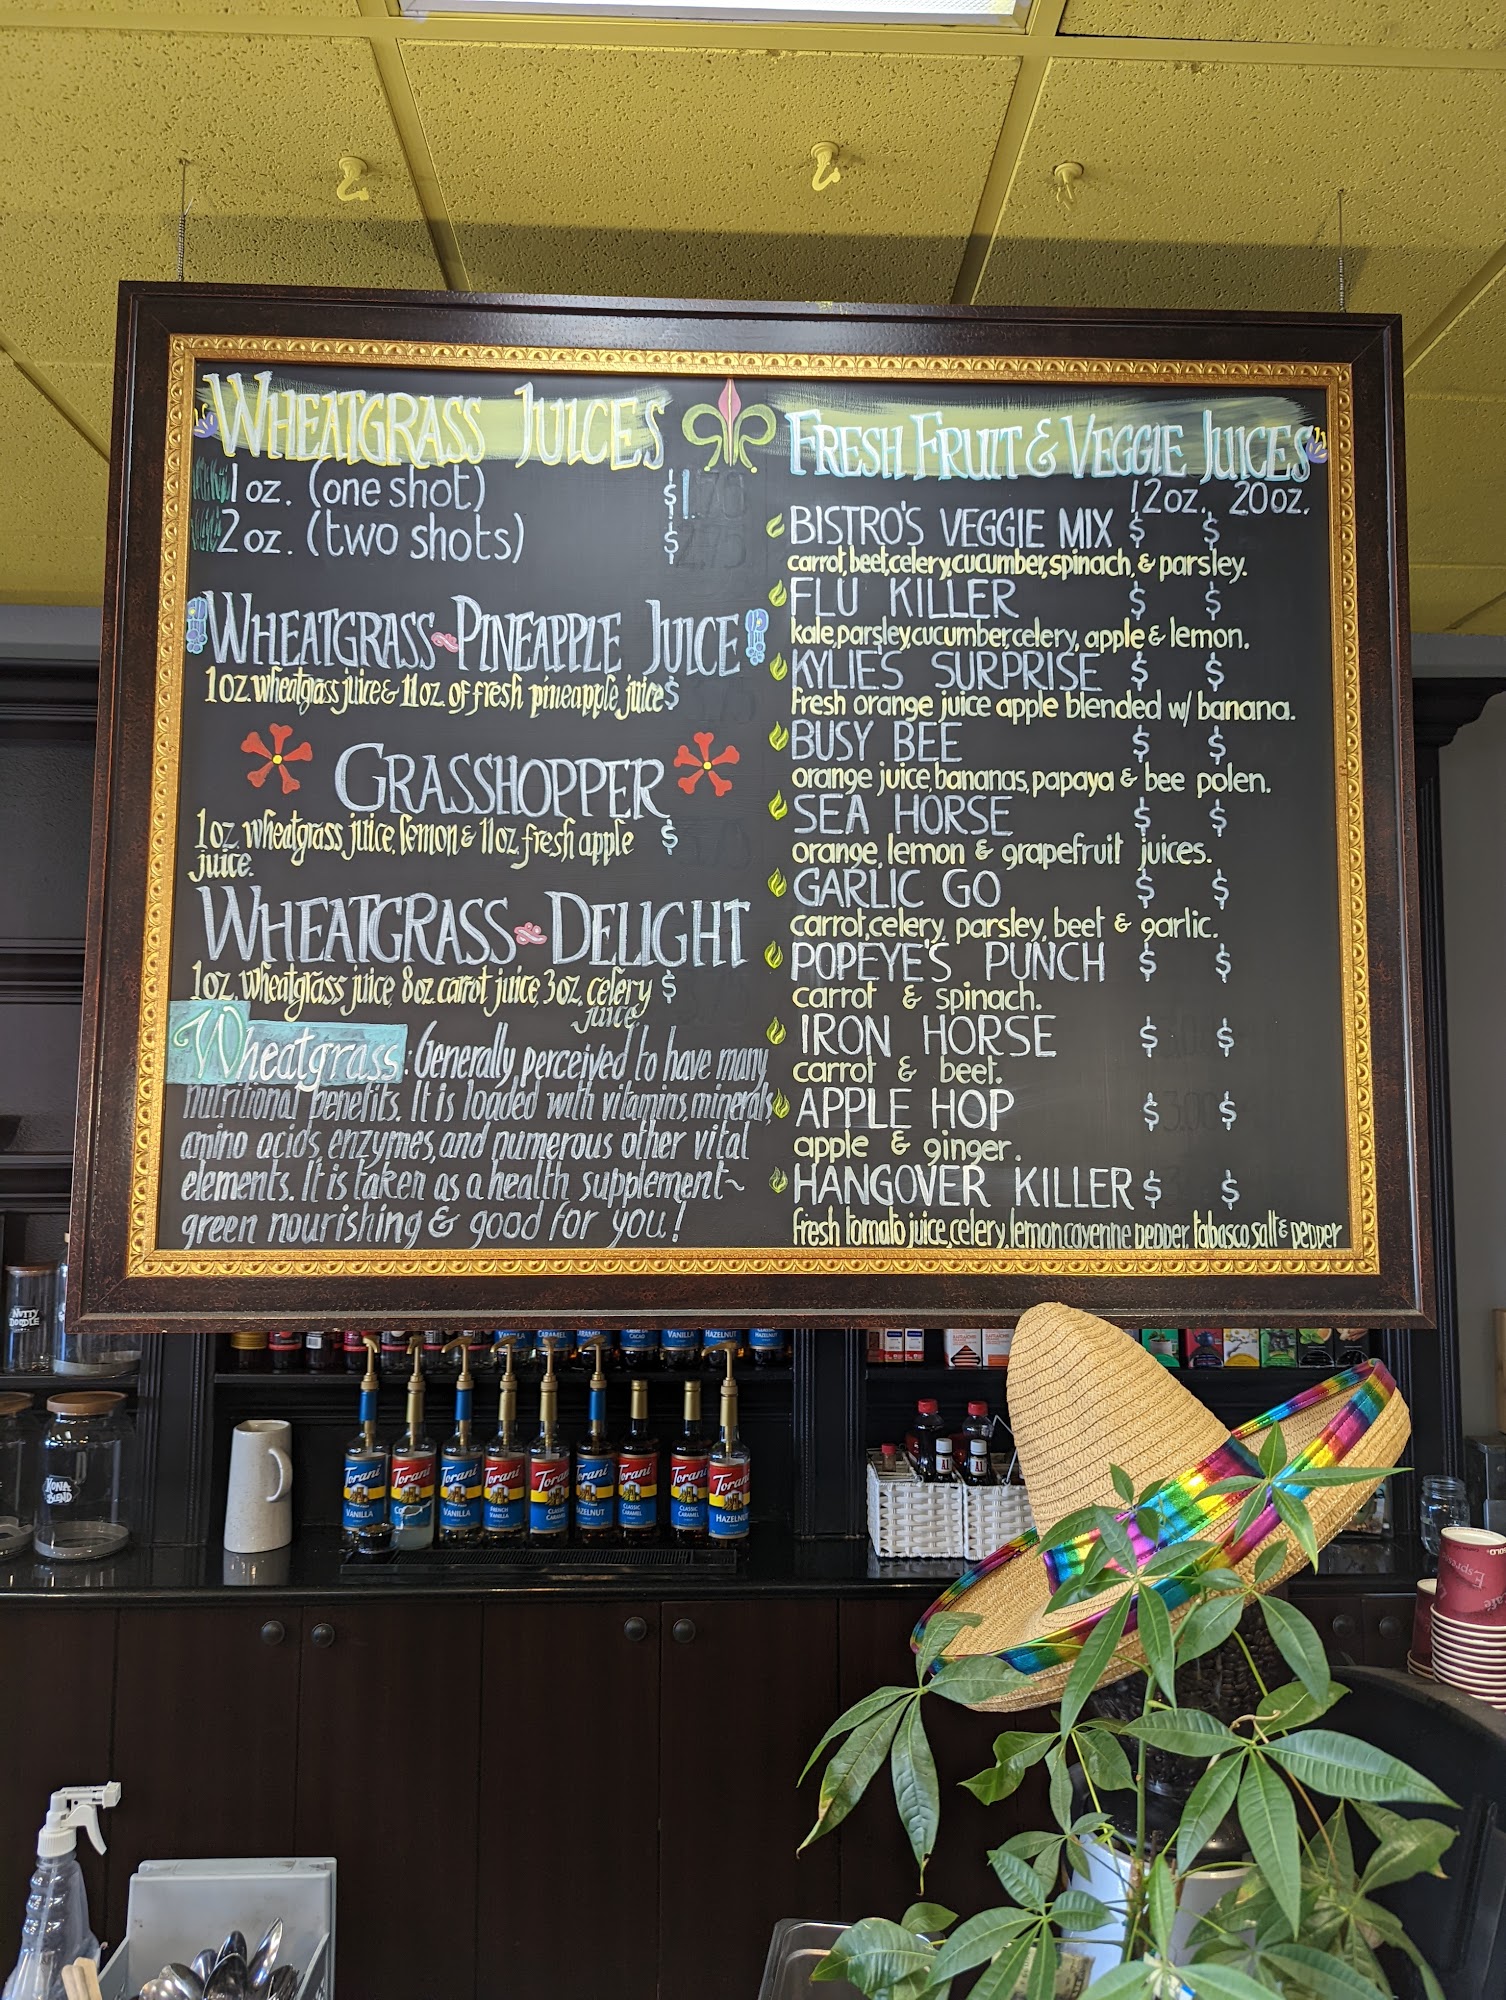 WHEATGRASS JUICES
1 oz. (one shot) $1.
2 oz. (two shots) $
WHEATGRASS PINEAPPLE JUICE
1 oz. wheatgrass juice & 11 oz. of fresh pineapple juice $
GRASSHOPPER
1 oz. wheatgrass juice, lemon & 11 oz. fresh apple $
juice.
WHEATGRASS DELIGHT
1 oz. wheatgrass juice, 8 oz carrot juice, 3 oz. celery $
juice.
Wheatgrass: Generally perceived to have many
nutritional benefits. It is loaded with vitamins, minerals,
amino acids, enzymes, and numerous other vital
elements. It is taken as a health supplement~
green nourishing & good for you!
FRESH FRUIT & VEGGIE JUICES
12oz. 20oz.
BISTRO'S VEGGIE MIX $ $
carrot, beet, celery, cucumber, spinach, & parsley.
FLU KILLER $ $
kale, parsley, cucumber, celery, apple & lemon.
KYLIE'S SURPRISE $ $
fresh orange juice apple blended w/ banana.
BUSY BEE $ $
orange juice, bananas, papaya & bee polen.
SEA HORSE $ $
orange, lemon & grapefruit juices.
GARLIC GO $ $
carrot, celery, parsley, beet & garlic.
POPEYE'S PUNCH $ $
carrot & spinach.
IRON HORSE $ $
carrot & beet.
APPLE HOP $ 3.00 $
apple & ginger.
HANGOVER KILLER $ $
fresh tomato juice, celery, lemon cayenne pepper, tabasco, salt & pepper
NUTTY
DOODLE
VANILLA
CARAMEL
VANILLA
HAZELNUT
KONA
BLEND
Torani
VANILLA
Torani
Torani
VANILLA
Torani
FRENCH
VANILLA
Torani
CLASSIC
CARAMEL
Torani
HAZELNUT
Torani
CLASSIC
CARAMEL
Torani
CLASSIC
CARAMEL
Torani
HAZELNUT
A1
A1
SOLO